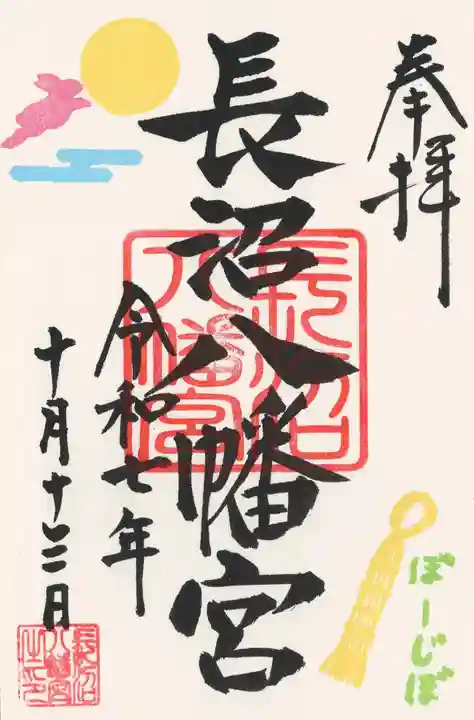 奉拝
長沼八幡宮
令和七年
十月十三日
ぼーじぼ
長沼八幡宮
長沼八幡宮之印